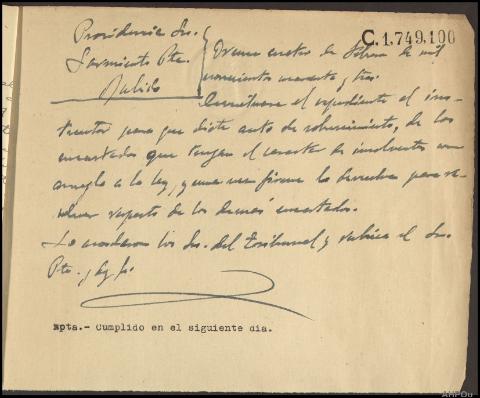 Providencia Sres.
Sarmiento Pte.
Pulido
C.1.749.100
cuatro de Febrero de mil
novecientos cuarenta y tres.
Devuélvase el expediente al ins-
tructor para que dicte auto de sobreseimiento, de los
encartados que tengan el caracter de insolventes con
arreglo a la ley, y una vez firme lo devuelva para re-
solver respecto de los demás encartados.
Lo acordaron los Sres. del Tribunal y rubrica el Sr.
Pte. 
Npta.- Cumplido en el siguiente dia.
AHPOu